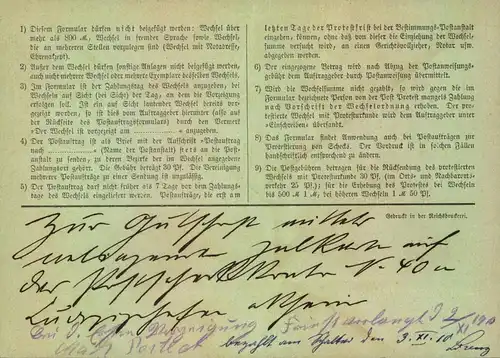 1) Diesem Formular dürfen nicht beigefügt werden: Wechsel über
mehr als 800 M, Wechsel in fremder Sprache sowie Wechsel,
die an mehreren Stellen vorzulegen sind (Wechsel mit Notadresse,
Ehrenakzept).
2) Außer dem Wechsel dürfen sonstige Anlagen nicht beigefügt werden,
auch nicht mehrere Wechsel oder mehrere Exemplare desselben Wechsels.
3) Im Formular ist der Zahlungstag des Wechsels anzugeben, bei
Wechseln auf Sicht (bei Sicht) der Tag, an dem die Vorzeigung
erfolgen soll. Ist ein auf Sicht lautender Wechsel bereits vor-
gezeigt, so ist dies vom Auftraggeber hierunter (also auf
der Rückseite des Postauftragsformulars) durch den Vermerk
»Der Wechsel ist vorgezeigt am ............« anzugeben.
4) Der Postauftrag ist als Brief mit der Aufschrift »Postauftrag
nach ............« (Name der Postanstalt) stets an die Post-
anstalt zu senden, zu deren Bezirke der im Wechsel angegebene
Zahlungsort gehört. Die Gebühr beträgt 30 Pf. Die Vereinigung
mehrerer Postaufträge zu einer Sendung ist unzulässig.
5) Der Postauftrag darf nicht früher als 7 Tage vor dem Zahlungs-
tage des Wechsels eingeliefert werden. Postaufträge, die erst am
letzten Tage der Protestfrist bei der Bestimmungs-Postanstalt
eingehen, können, ohne daß von dieser die Einziehung der Wechsel-
summe versucht wird, an einen Gerichtsvollzieher, Notar usw.
abgegeben werden.
6) Der eingezogene Betrag wird nach Abzug der Postanweisungs-
gebühr dem Auftraggeber durch Postanweisung übermittelt.
7) Wird die Wechselsumme nicht gezahlt, so wird gegen die im
Formular bezeichnete Person von der Post Protest mangels Zahlung
nach Vorschrift der Wechselordnung erhoben. Der pro-
testierte Wechsel mit Protesturkunde wird dem Auftraggeber unter
»Einschreiben« übersandt.
8) Das Formular findet Anwendung auch bei Postaufträgen zur
Protestierung von Schecks. Der Vordruck ist in solchen Fällen
handschriftlich entsprechend zu ändern.
9) Die Postgebühren betragen für die Rücksendung des protestierten
Wechsels mit Protesturkunde 30 Pf. (im Orts- und Nachbarorts-
verkehr 25 Pf.); für die Erhebung des Protestes bei Wechseln
bis 500 M 1 M, bei höheren Wechseln 1 M 50 Pf.
Gedruckt in der Reichsdruckerei.
Zur Gutschrift mittels
Zahlkarte auf
das Postscheckkonto N. 40
Ludwigshafen a Rhein
Bei d. ersten Vorzeigung Frist verlangt
bezahlt am Schalter den 3. XI. 10